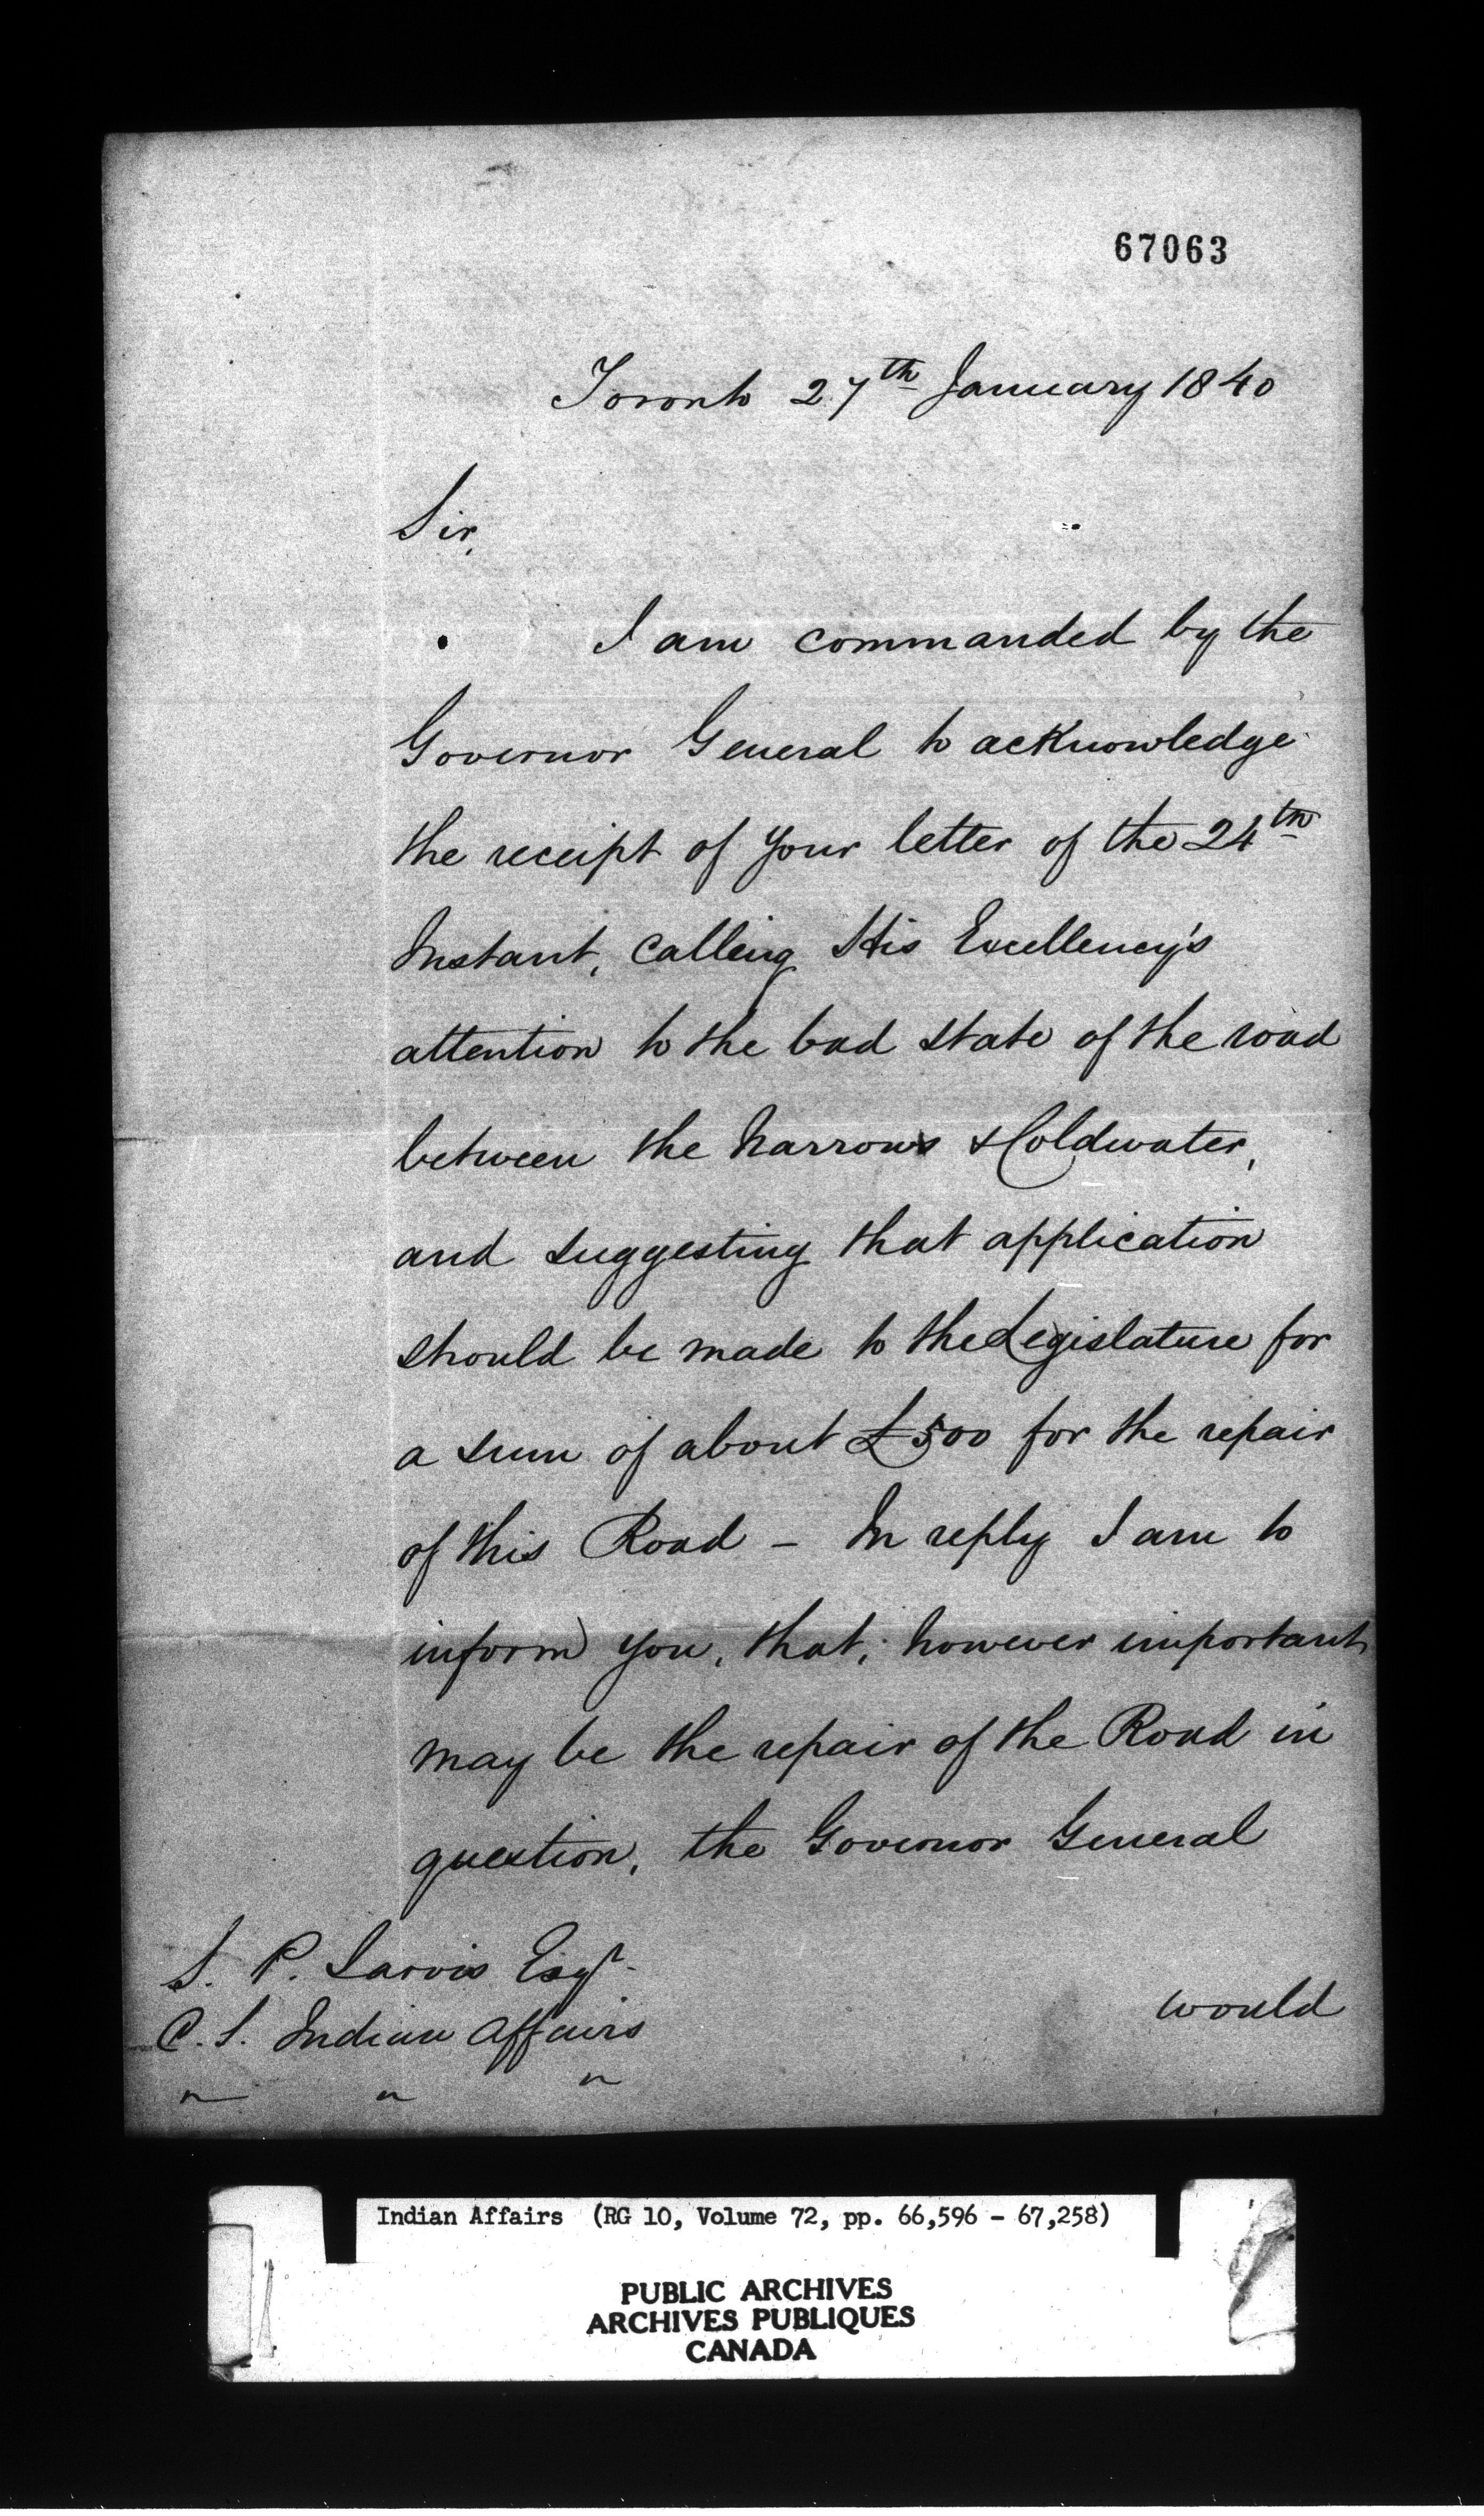 67063
Toronto 27th January 1840
Sir,
I am commanded by the
Governor General to acknowledge
the receipt of your letter of the 24th
Instant, calling His Excellency's
attention to the bad state of the road
between the Narrows & Coldwater,
and suggesting that application
should be made to the Legislature for
a sum of about £500 for the repair
of this Road - In reply I am to
inform you, that, however important
may be the repair of the Road in
question, the Governor General
would
S. P. Jarvis Esqr.
C. S. Indian Affairs
" " "
Indian Affairs (RG 10, Volume 72, pp. 66,596 - 67,258)
PUBLIC ARCHIVES
ARCHIVES PUBLIQUES
CANADA